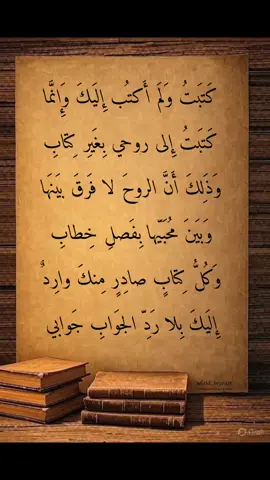 كَتَبتُ وَلَم أَكتُب إِلَيكَ وَإِنَّما
كَتَبتُ إِلى روحي بِغَيرِ كِتابِ
وَذَلِكَ أَنَّ الروحَ لا فَرقَ بَينَها
وَبَينَ مُحِبّيها بِفَصلِ خِطابِ
وَكُلُّ كِتابٍ صادِرٍ مِنكَ وارِدٌ
إِلَيكَ بِلا رَدِّ الجَوابِ جَوابي